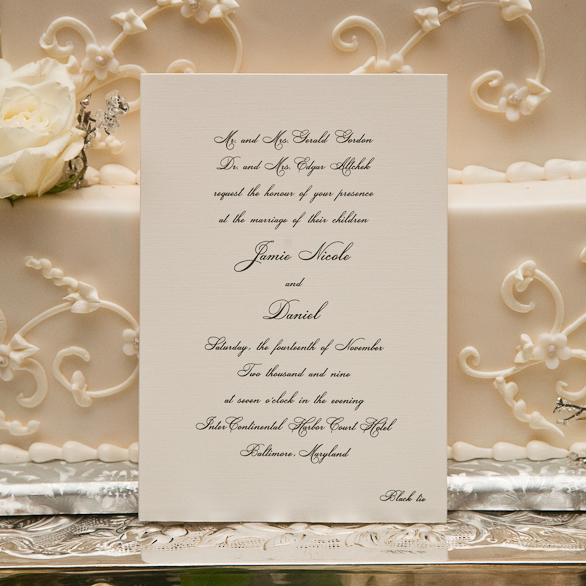 Mr. and Mrs. Gerald Gordon
Dr. and Mrs. Edgar Altchek
request the honour of your presence
at the marriage of their children
Jamie Nicole
and
Daniel
Saturday, the fourteenth of November
Two thousand and nine
at seven o'clock in the evening
InterContinental Harbor Court Hotel
Baltimore, Maryland
Black tie